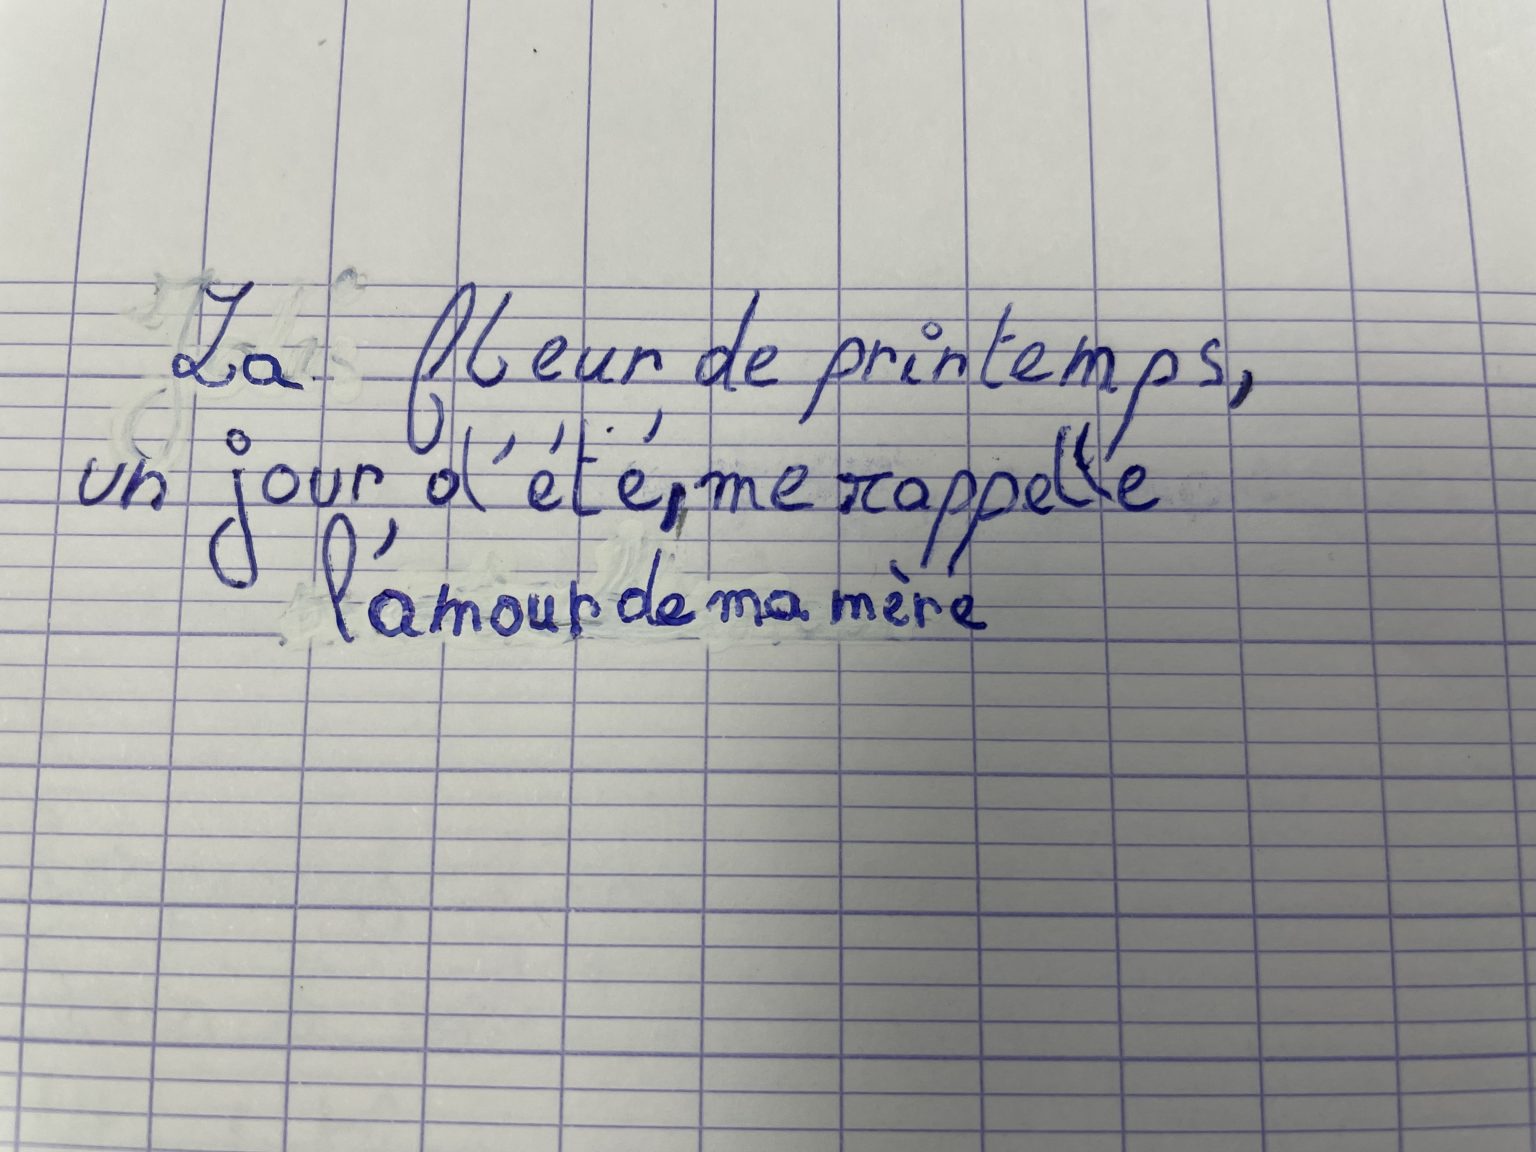 La fleur de printemps,
un jour d'été, me rappelle
l'amour de ma mère